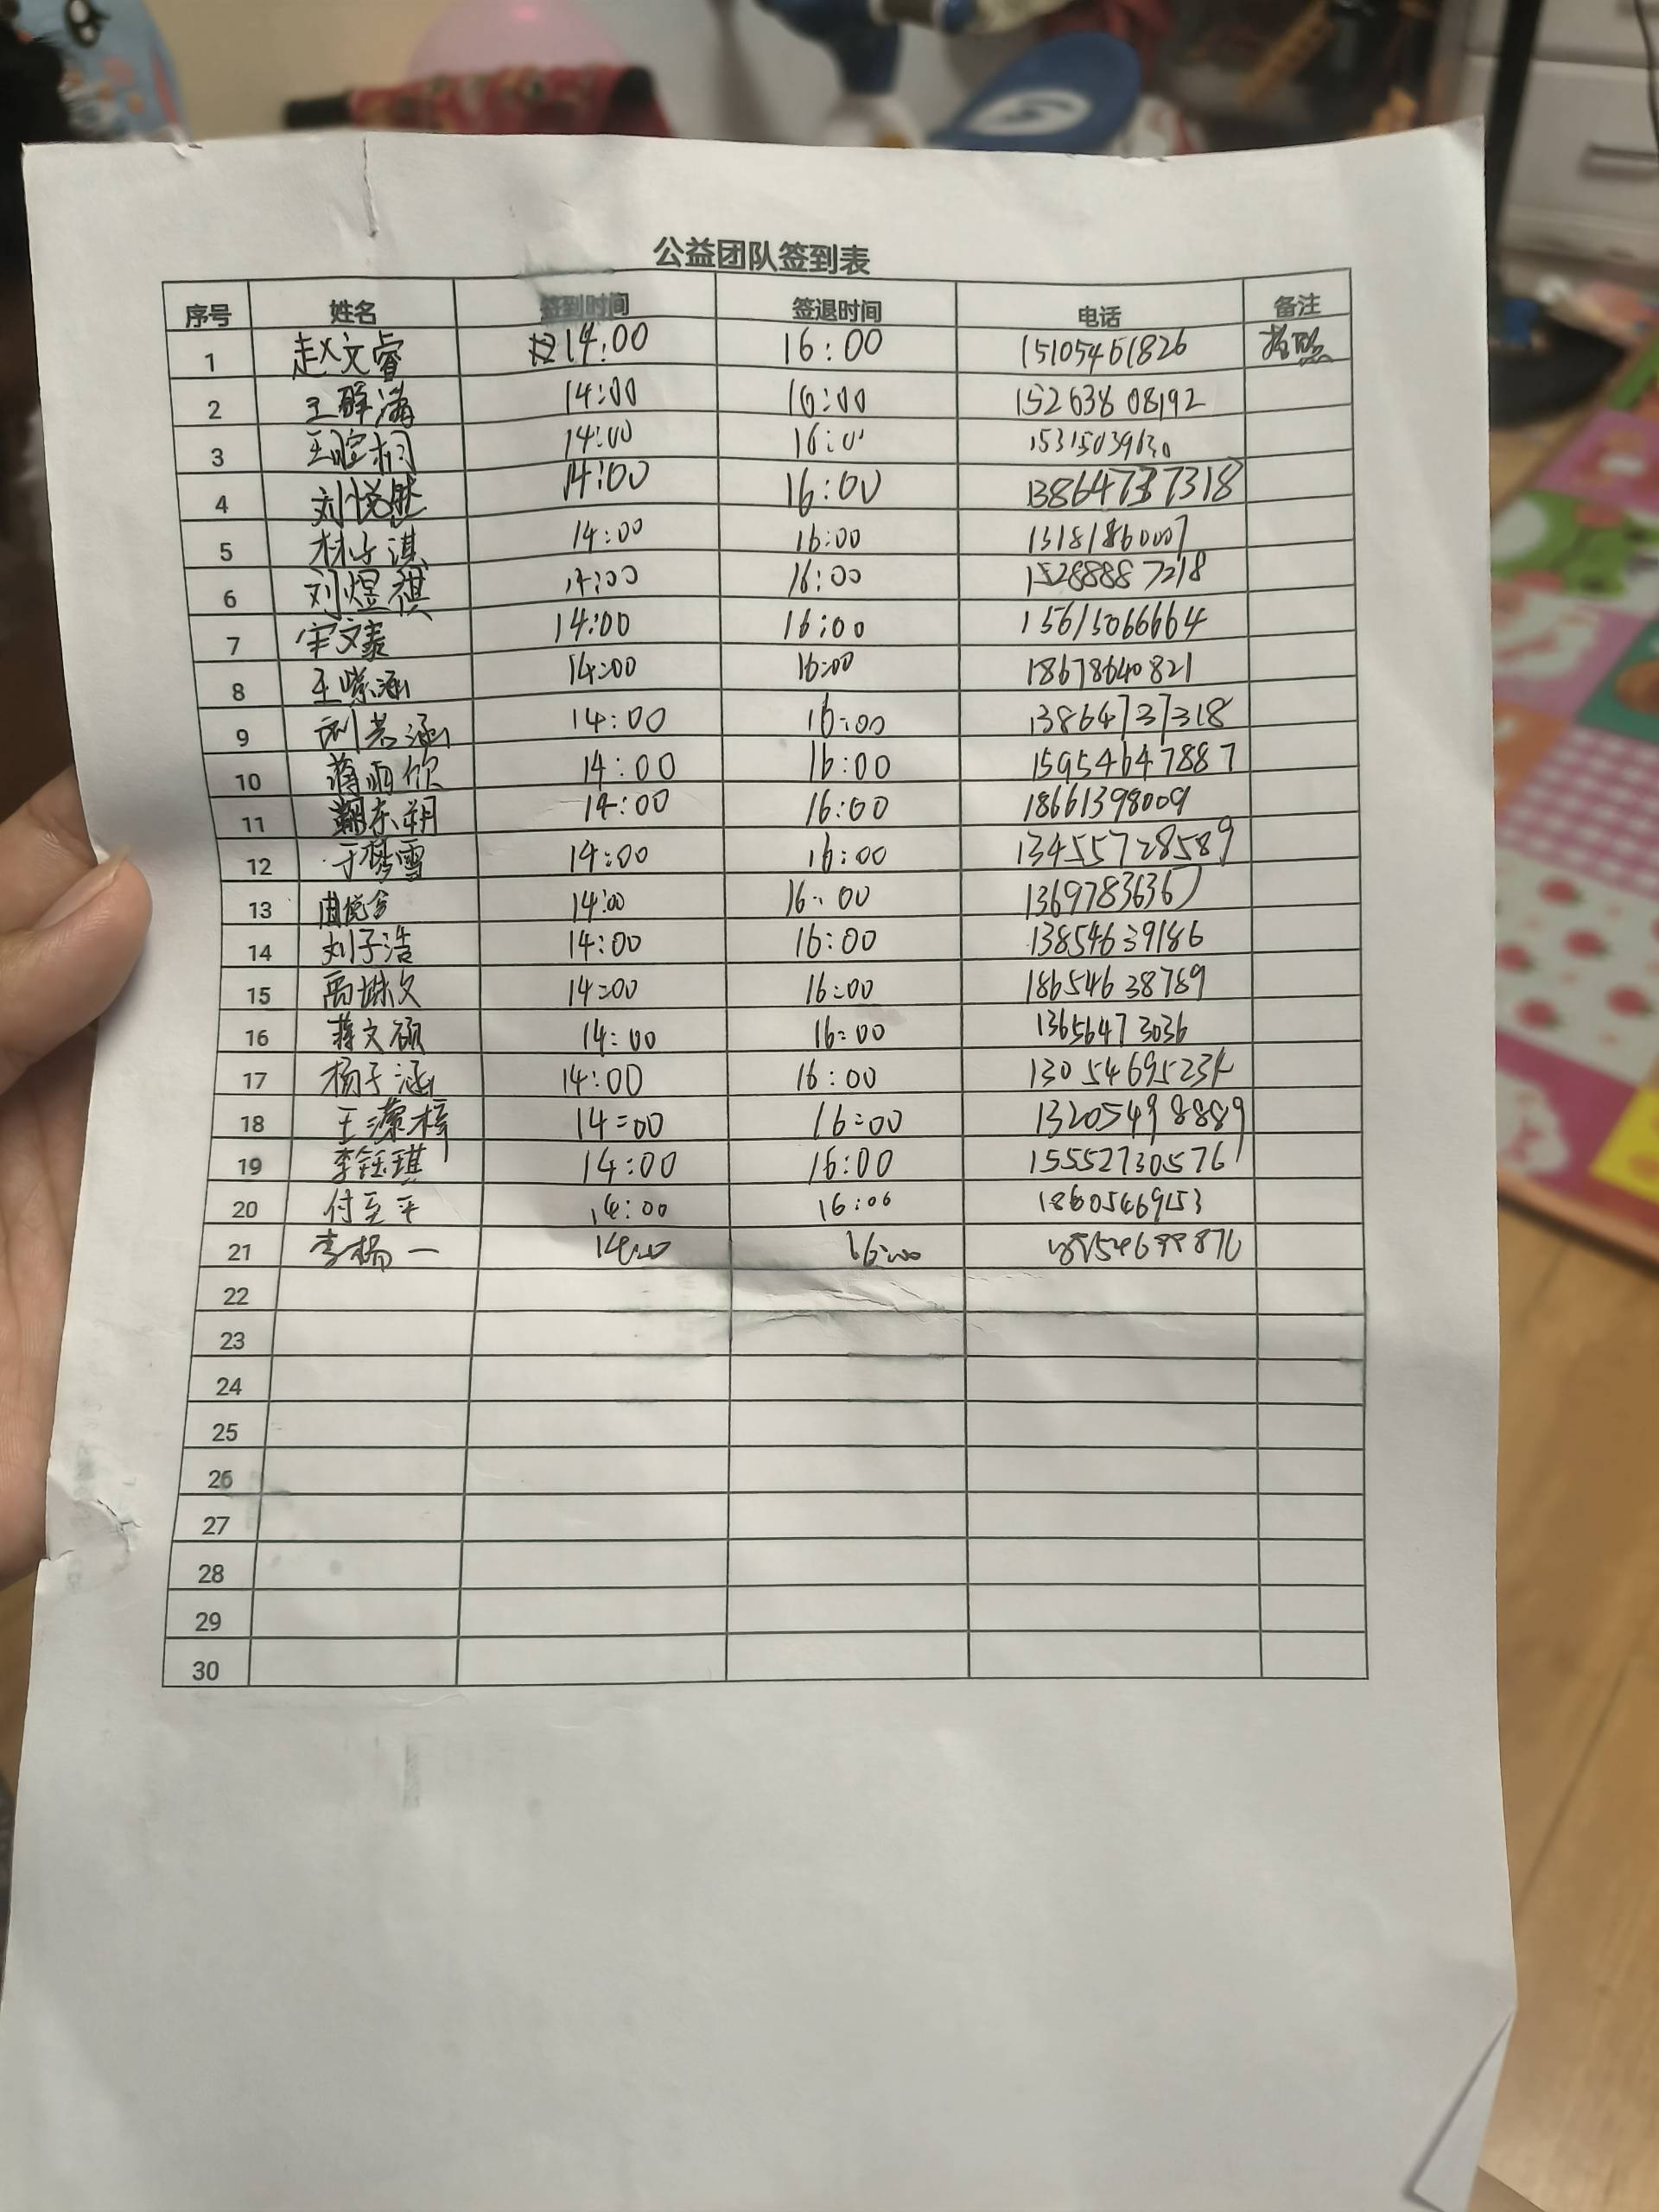 公益团队签到表
序号 姓名 签到时间 签退时间 电话 备注
1 赵文睿 14:00 16:00 15105461826 拍照
2 王 14:00 16:00 15263808192
3 王 14:00 16:0 15315039630
4 刘悦然 14:00 16:00 13864737318
5 林子淇 14:00 16:00 13181860007
6 刘煜祺 14:00 16:00 15288887218
7 宋文泰 14:00 16:00 15615066664
8 王紫涵 14:00 16:00 18678640821
9 刘若涵 14:00 16:00 13864737318
10 蒋雨欣 14:00 16:00 15954647887
11 14:00 16:00 18661398009
12 于梦雪 14:00 16:00 13455728589
13 14:00 16:00 13697836367
14 刘子浩 14:00 16:00 13854639186
15 14:00 16:00 18654638789
16 蒋文硕 14:00 16:00 13656473036
17 杨子涵 14:00 16:00
18 王潆梓 14:00 16:00 13205498889
19 李钰琪 14:00 16:00 15552730576
20 付至平 14:00 16:00 18605469153
21 李杨一 14:00 16:00
22
23
24
25
26
27
28
29
30